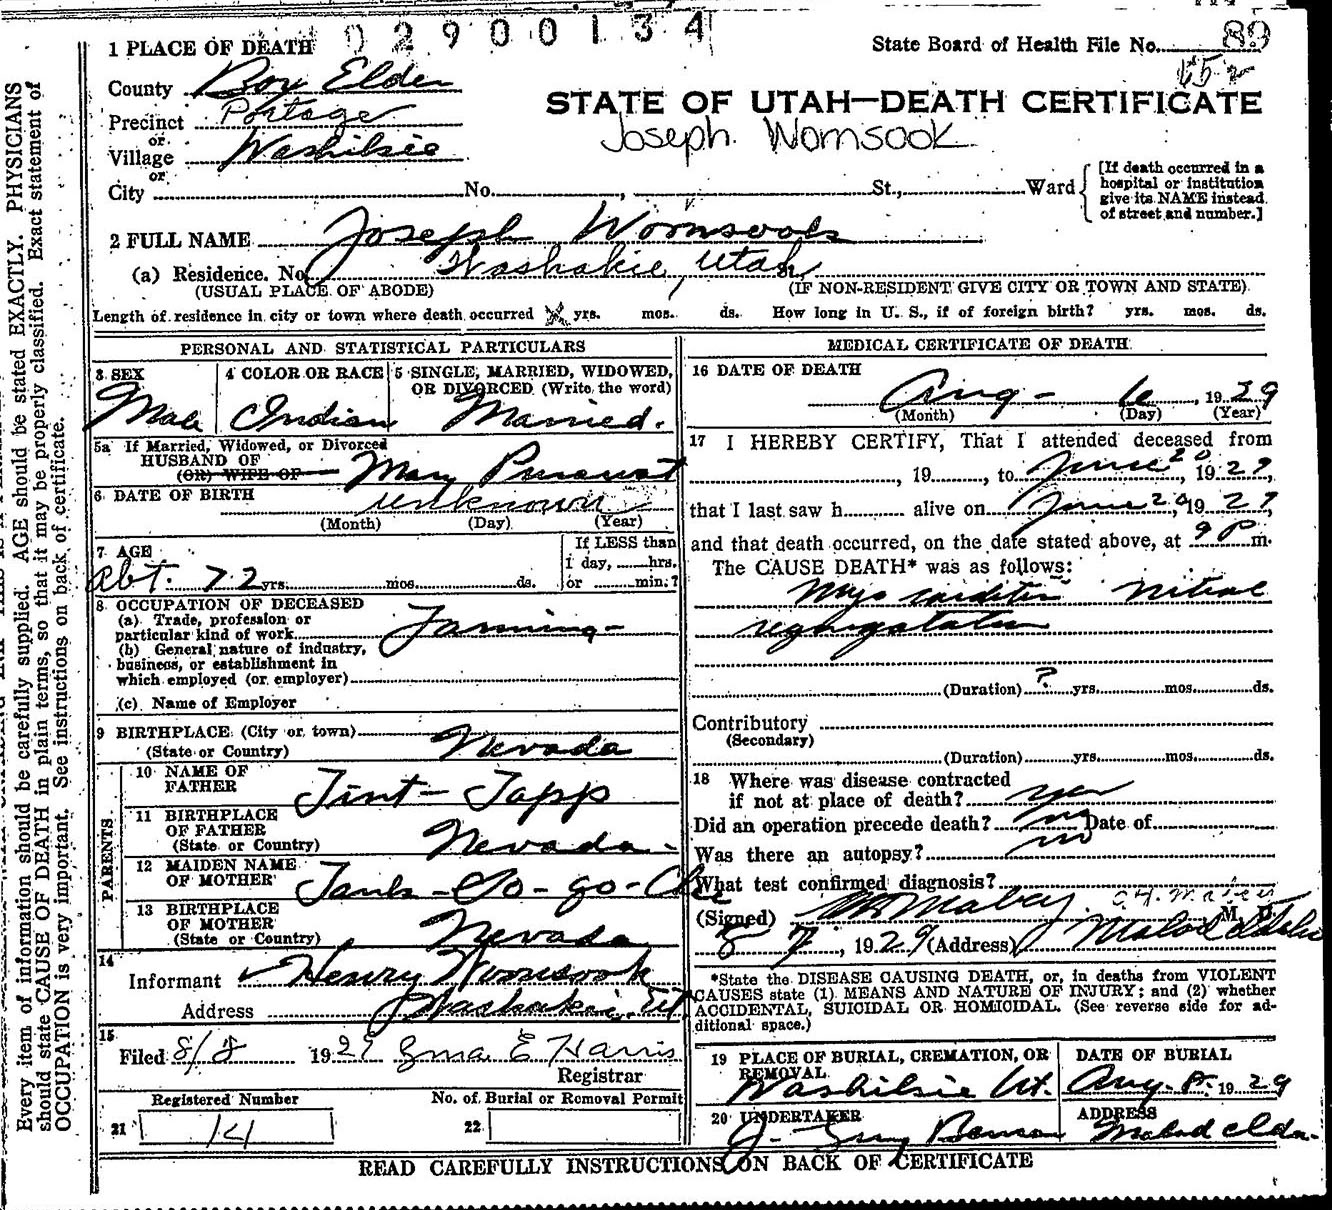 02900134
1 PLACE OF DEATH
State Board of Health File No. 89
County Box Elder
Precinct Portage
or
Village Washikie
or
City No. , St., Ward
[If death occurred in a hospital or institution give its NAME instead of street and number.]
STATE OF UTAH—DEATH CERTIFICATE
Joseph Womsook
2 FULL NAME Joseph Womsook
(a) Residence. No. Washakie, Utah
(USUAL PLACE OF ABODE) (IF NON-RESIDENT GIVE CITY OR TOWN AND STATE)
Length of residence in city or town where death occurred yrs. mos. ds. How long in U. S., if of foreign birth? yrs. mos. ds.
PERSONAL AND STATISTICAL PARTICULARS
3 SEX
Male
4 COLOR OR RACE
Indian
5 SINGLE, MARRIED, WIDOWED, OR DIVORCED (Write the word)
Married.
5a If Married, Widowed, or Divorced
HUSBAND OF
(OR) WIFE OF
Mary
6 DATE OF BIRTH
unknown
(Month) (Day) (Year)
7 AGE
Abt. 72 yrs. mos. ds.
If LESS than
1 day, hrs.
or min.?
8 OCCUPATION OF DECEASED
(a) Trade, profession or
particular kind of work Farming
(b) General nature of industry,
business, or establishment in
which employed (or employer)
(c) Name of Employer
9 BIRTHPLACE (City or town)
(State or Country) Nevada
PARENTS
10 NAME OF FATHER Tint-Tapp
11 BIRTHPLACE OF FATHER
(State or Country) Nevada
12 MAIDEN NAME OF MOTHER
13 BIRTHPLACE OF MOTHER
(State or Country) Nevada
14
Informant Henry Womsook
Address Washakie, Ut
15
Filed 8/8 1929 Zma E Harris
Registrar
Registered Number
21 14
No. of Burial or Removal Permit
22
MEDICAL CERTIFICATE OF DEATH
16 DATE OF DEATH
Aug - 6, 1929
(Month) (Day) (Year)
17 I HEREBY CERTIFY, That I attended deceased from
, 19 , to June 20, 1929,
that I last saw h alive on June 20, 1929,
and that death occurred, on the date stated above, at 9 P m.
The CAUSE DEATH* was as follows:
Myocarditis Mitral
regurgitation
(Duration) ? yrs. mos. ds.
Contributory
(Secondary)
(Duration) yrs. mos. ds.
18 Where was disease contracted
if not at place of death? yes
Did an operation precede death? no Date of
Was there an autopsy? no
What test confirmed diagnosis?
(Signed) Mabey, M. D.
8 7, 1929 (Address) Malad Idaho
*State the DISEASE CAUSING DEATH, or, in deaths from VIOLENT
CAUSES state (1) MEANS AND NATURE OF INJURY; and (2) whether
ACCIDENTAL, SUICIDAL OR HOMICIDAL. (See reverse side for ad-
ditional space.)
19 PLACE OF BURIAL, CREMATION, OR REMOVAL
Washikie Ut.
DATE OF BURIAL
Aug. 8. 1929
20 UNDERTAKER
J. Benson
ADDRESS
Malad
READ CAREFULLY INSTRUCTIONS ON BACK OF CERTIFICATE
Every item of information should be carefully supplied. AGE should be stated EXACTLY. PHYSICIANS
should state CAUSE OF DEATH in plain terms, so that it may be properly classified. Exact statement of
OCCUPATION is very important. See instructions on back of certificate.